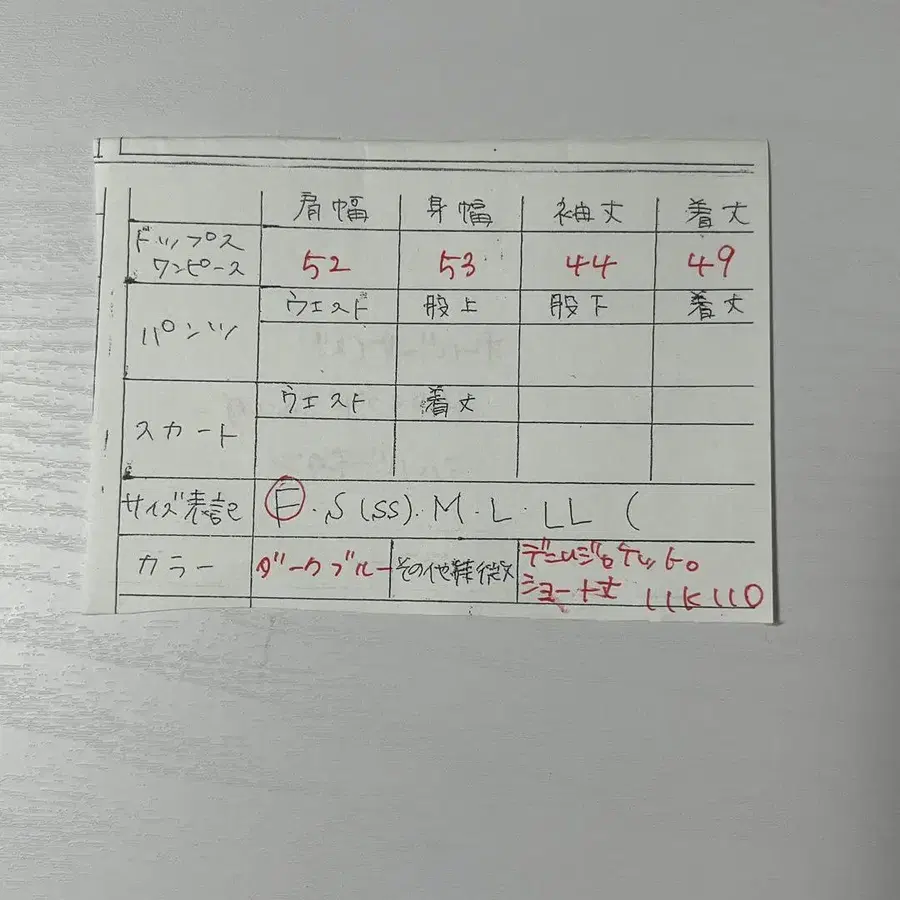 肩幅 身幅 袖丈 着丈
トップス
ワンピース 52 53 44 49
パンツ ウエスト 股上 股下 着丈
スカート ウエスト 着丈
サイズ表記 F・S(SS)・M・L・LL (
カラー ダークブルー その他特徴 デニムジャケット。
ショート丈 11K110